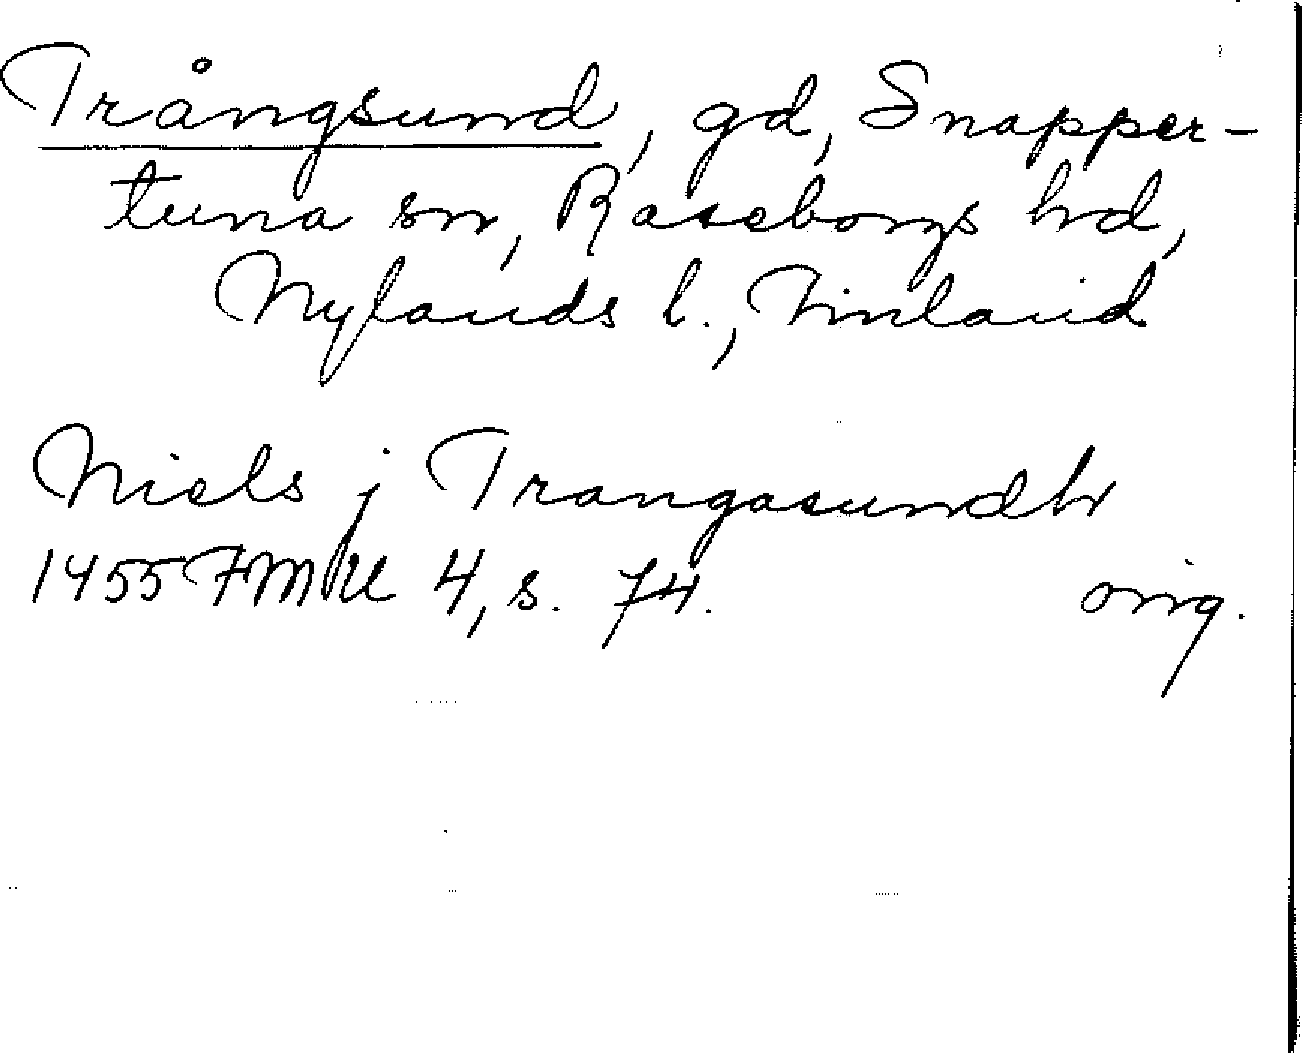 Trångsund, gd, Snapper-
tuna sn, Raseborgs hd,
Nylands l., Finland
Niels j Trangasundh
1455 FMU 4, s. 74. orig.